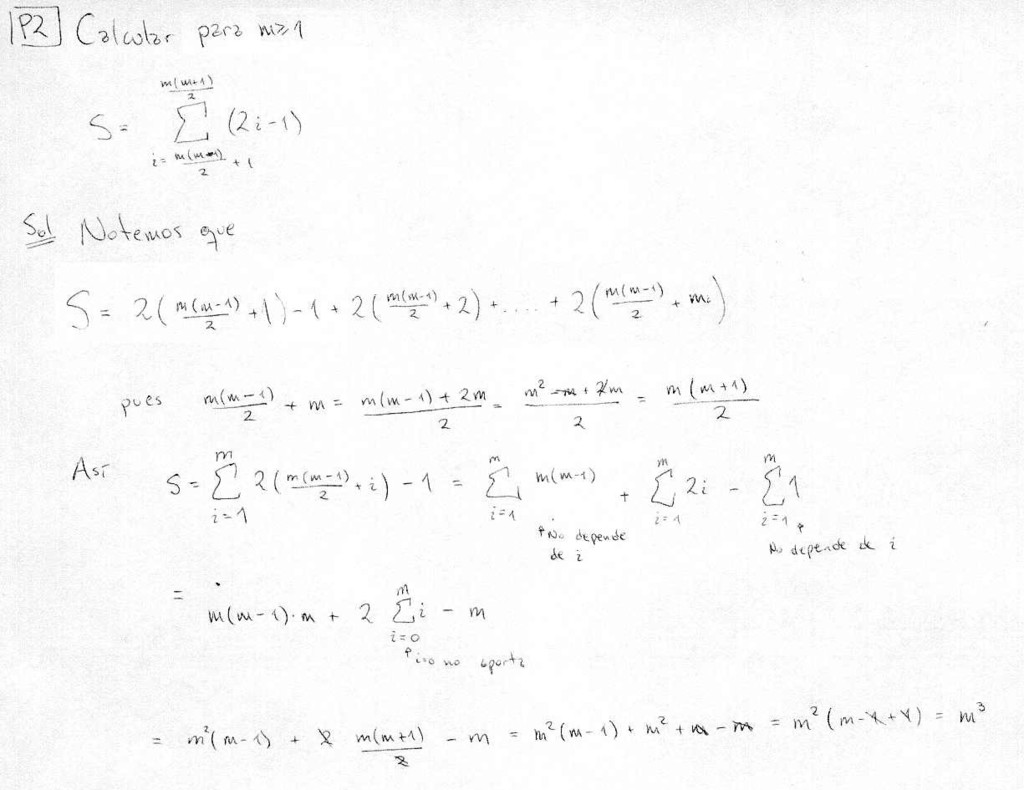 P2 Calcular para m≥1
S = \sum_{i=\frac{m(m-1)}{2}+1}^{\frac{m(m+1)}{2}} (2i-1)
Sol Notemos que
S = 2(\frac{m(m-1)}{2}+1)-1 + 2(\frac{m(m-1)}{2}+2)+....+ 2(\frac{m(m-1)}{2}+m)
pues \frac{m(m-1)}{2} + m = \frac{m(m-1)+2m}{2} = \frac{m^2-m+2m}{2} = \frac{m(m+1)}{2}
Así S = \sum_{i=1}^{m} 2(\frac{m(m-1)}{2}+i) - 1 = \sum_{i=1}^{m} m(m-1) + \sum_{i=1}^{m} 2i - \sum_{i=1}^{m} 1
↑No depende de i
↑ No depende de i
= m(m-1)·m + 2 \sum_{i=0}^{m} i - m
↑i=0 no aporta
= m^2(m-1) + 2 \frac{m(m+1)}{2} - m = m^2(m-1) + m^2 + m - m = m^2(m-1+1) = m^3